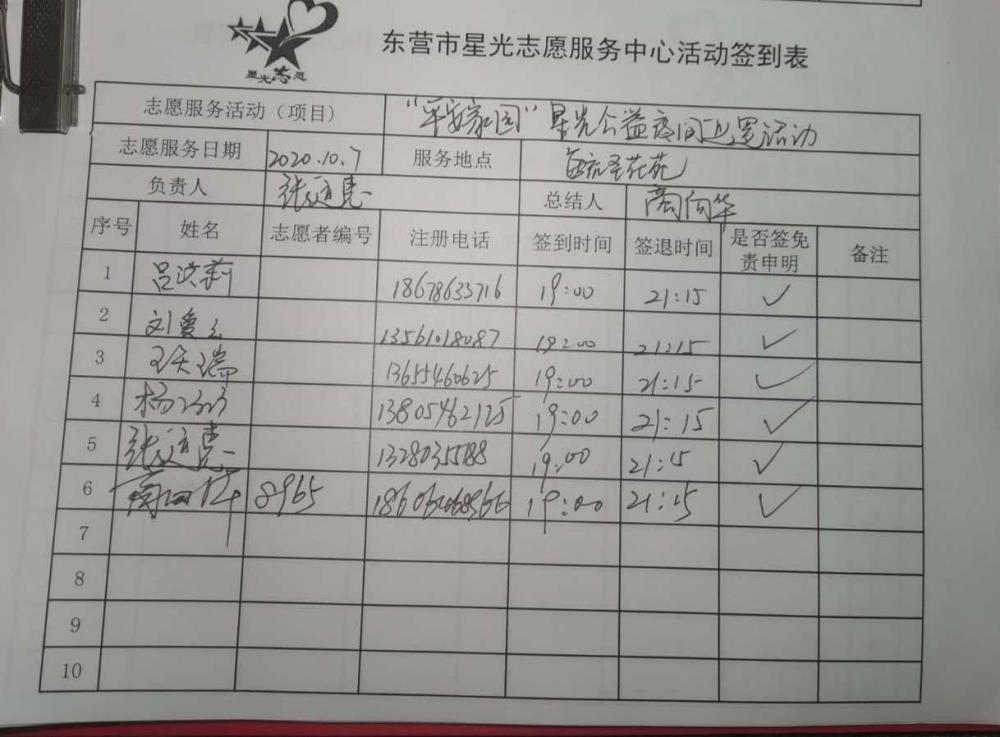 星光志愿
东营市星光志愿服务中心活动签到表
志愿服务活动（项目） “平安家园”星光公益夜间巡逻活动
志愿服务日期 2020.10.7 服务地点 花苑
负责人 张道 总结人 商向华
序号 姓名 志愿者编号 注册电话 签到时间 签退时间 是否签免责申明 备注
1 吕洪莉 18678633716 19:00 21:15 ✓
2 刘爱 13561018087 19:00 21:15 ✓
3 瑞 13655460625 19:00 21:15 ✓
4 杨 13805462125 19:00 21:15 ✓
5 张道 13280355188 19:00 21:15 ✓
6 商向华 8965 19:00 21:15 ✓
7
8
9
10